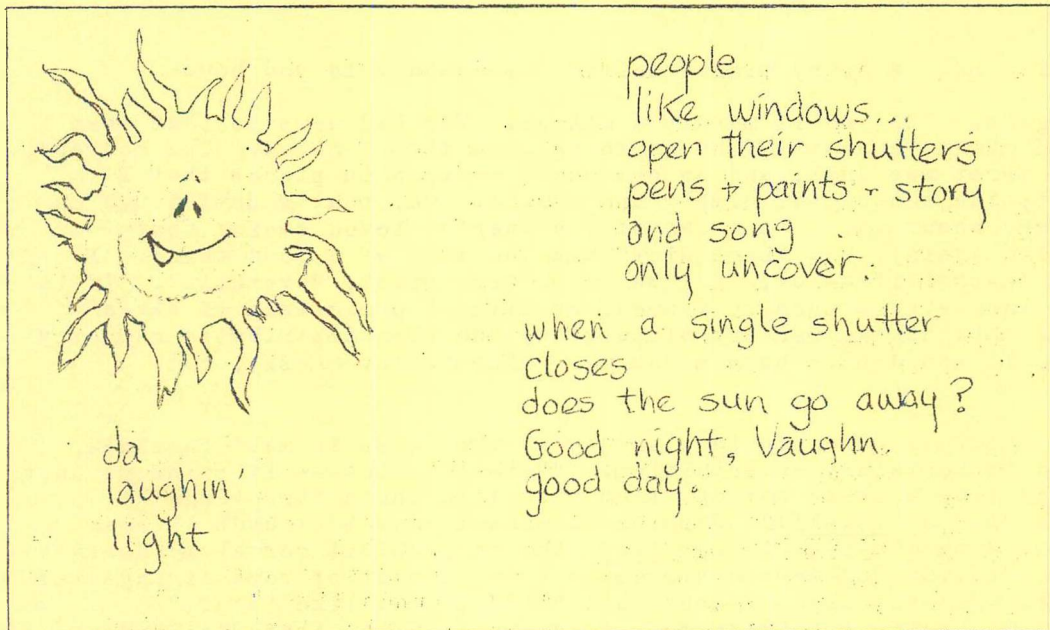 people
like windows...
open their shutters
pens + paints - story
and song
only uncover.
when a single shutter
closes
does the sun go away?
Good night, Vaughn.
good day.
da
laughin'
light